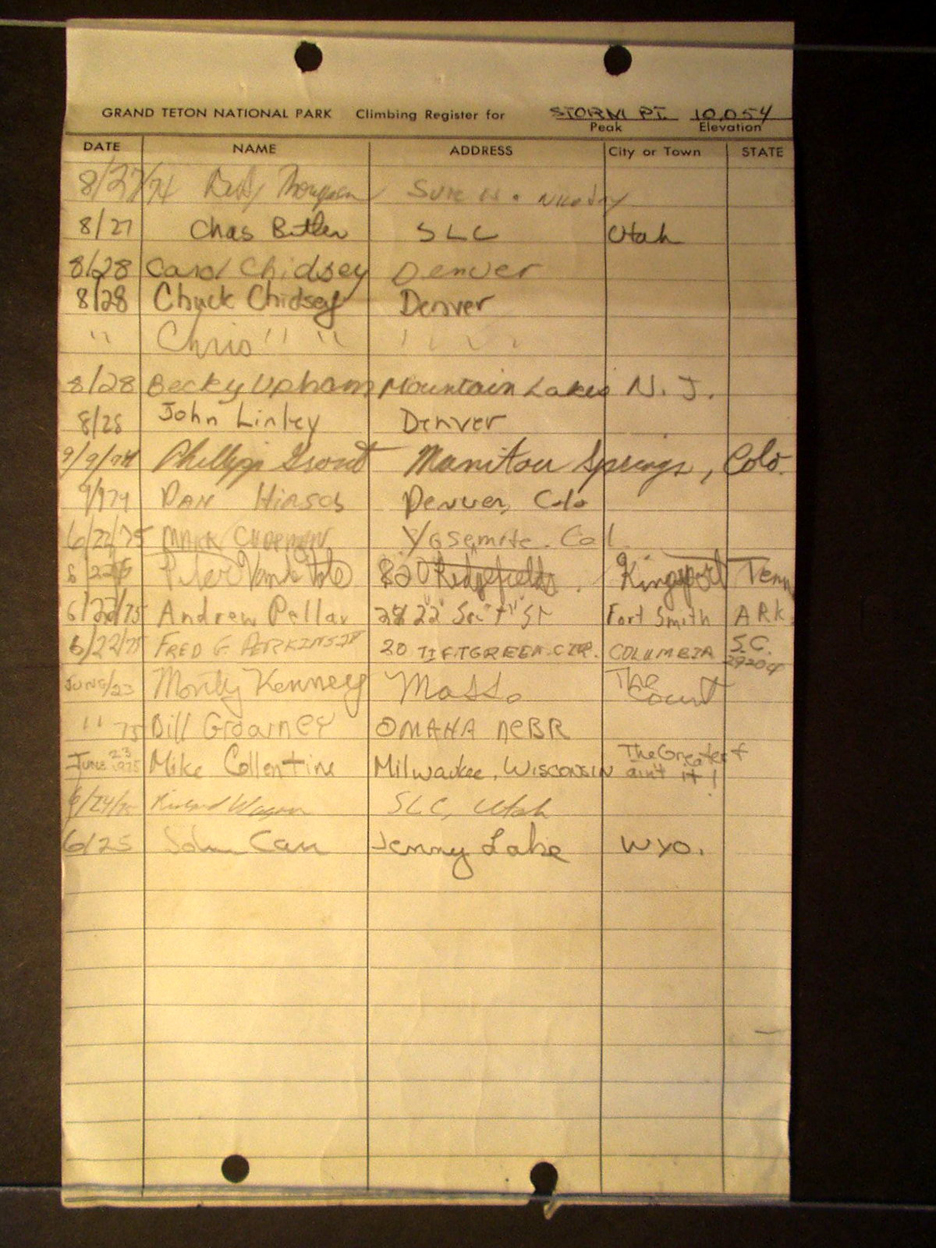 GRAND TETON NATIONAL PARK Climbing Register for STORM PT. 10,054
Peak Elevation
DATE NAME ADDRESS City or Town STATE
8/27/74 Thompson Sure is a nice day
8/27 Chas Butler SLC Utah
8/28 Carol Chidsey Denver
8/28 Chuck Chidsey Denver
" Chris " " " " " "
8/28 Becky Upham Mountain Lakes N.J.
8/28 John Linley Denver
9/9/74 Phillip Grout Manitou Springs, Colo.
9/9 74 DAN HIRSCH Denver, Colo
6/22/75 MARK CHAPMAN Yosemite. Cal.
Peter 820 Ridgefields Kingsport Tenn
6/22/75 Andrew Pallav 2822 So. "T" St Fort Smith ARK
6/22/75 FRED G. PERKINS JR 20 TIFTGREEN CIR. COLUMBIA S.C.
29204
JUNE/23 Monty Kenney Mass. The Count
" 75 Bill OMAHA NEBR
JUNE 23 1975 Mike Collentine Milwaukee, WISCONSIN The Greatest ain't it!
6/24/75 Wagner SLC, Utah
6/25 John Carr Jenny Lake Wyo.